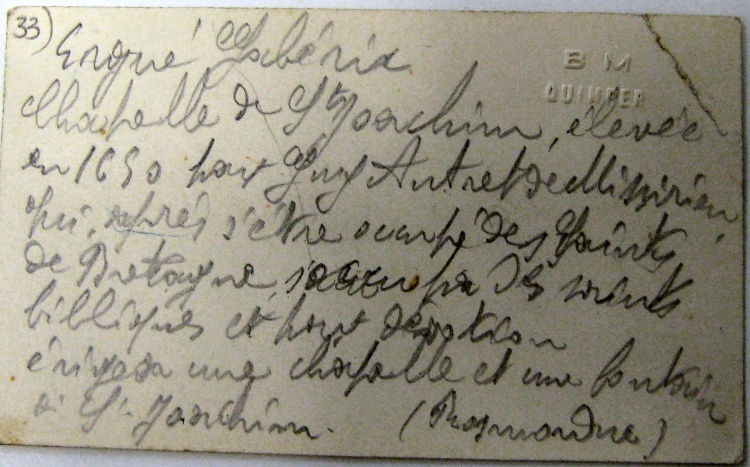 33)
Ergué Gabéric
B M
QUIMPER
Chapelle de St Joachim, élevée
en 1650 par Guy Autret de Missirien,
qui, après s'être occupé des Saints
de Bretagne, s'occupa des saints
bibliques et par dévotion
érigea une chapelle et une fontaine
à St Joachim. (Rosmorduc)